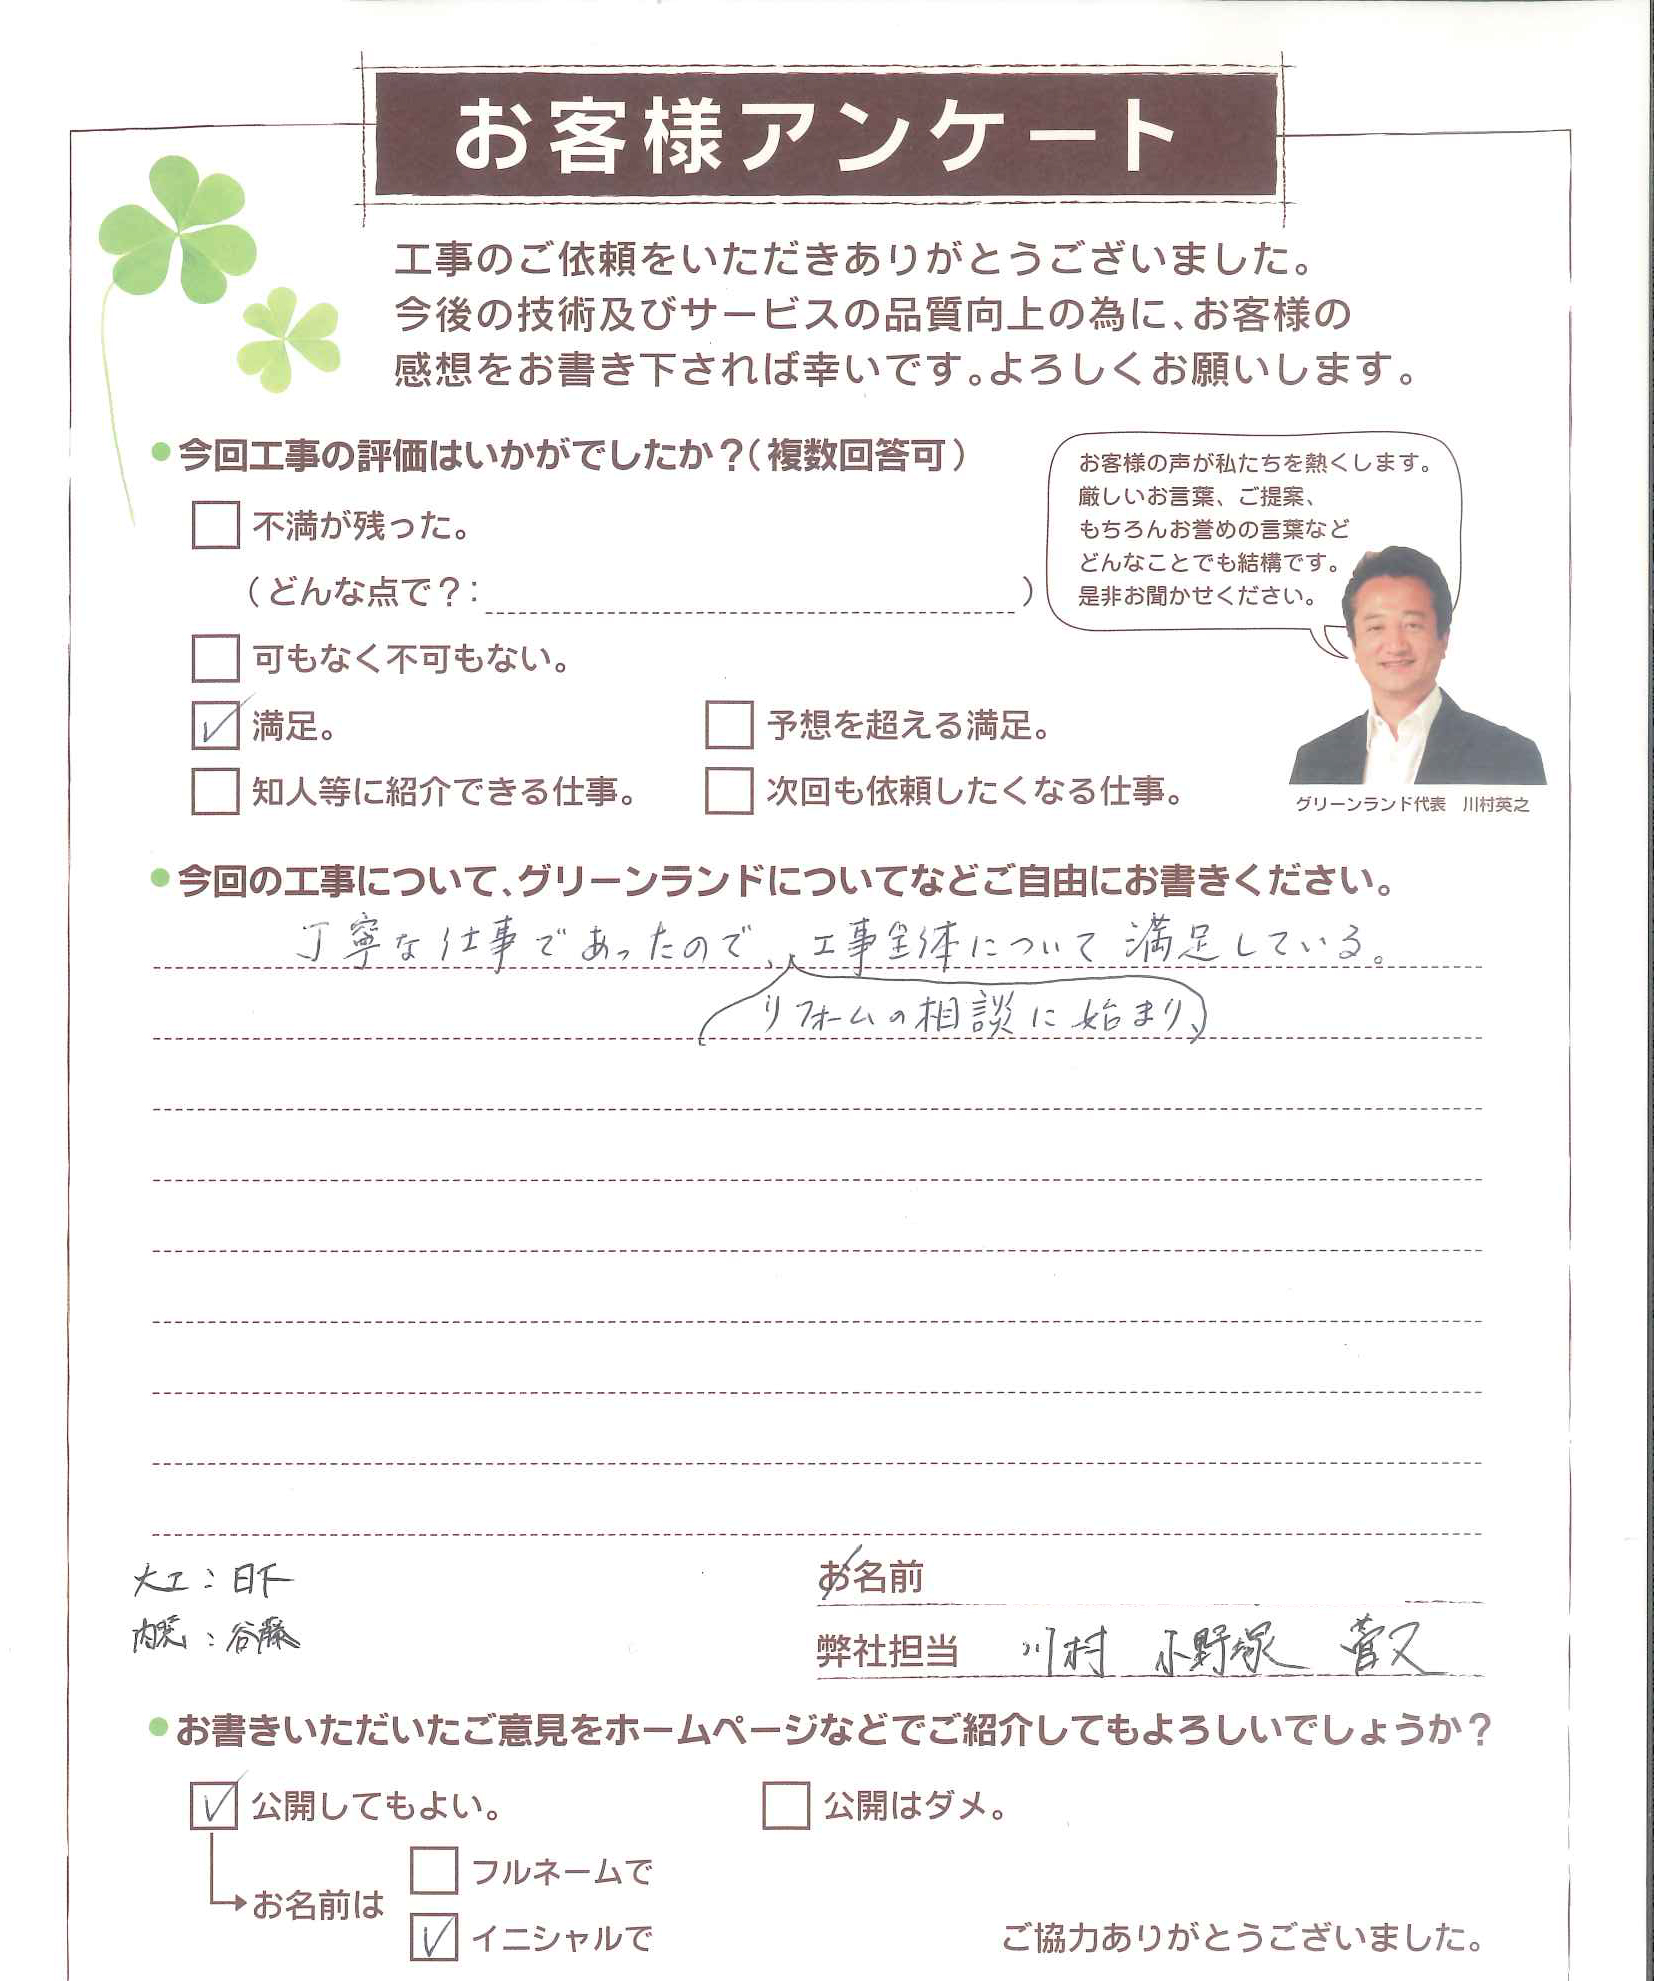 お客様アンケート
工事のご依頼をいただきありがとうございました。
今後の技術及びサービスの品質向上の為に、お客様の
感想をお書き下されば幸いです。よろしくお願いします。
●今回工事の評価はいかがでしたか？(複数回答可)
お客様の声が私たちを熱くします。
厳しいお言葉、ご提案、
もちろんお誉めの言葉など
どんなことでも結構です。
是非お聞かせください。
不満が残った。
(どんな点で？: )
可もなく不可もない。
満足。 予想を超える満足。
知人等に紹介できる仕事。 次回も依頼したくなる仕事。
グリーンランド代表 川村英之
●今回の工事について、グリーンランドについてなどご自由にお書きください。
丁寧な仕事であったので、工事全体について満足している。
リフォームの相談に始まり、
大工：日下
内装：谷藤
お名前
弊社担当 川村 小野塚 菅又
●お書きいただいたご意見をホームページなどでご紹介してもよろしいでしょうか？
公開してもよい。 公開はダメ。
お名前は
フルネームで
イニシャルで
ご協力ありがとうございました。